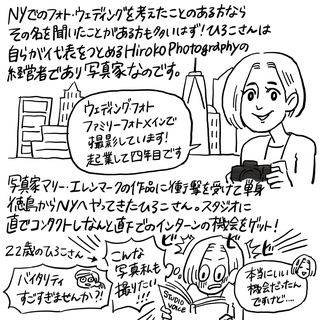 NYでのフォト・ウェディングを考えたことのある方なら
その名を聞いたことがある方も多いはず!ひろこさんは
自らが代表をつとめるHiroko Photographyの
経営者であり写真家なのです。
ウェディングフォト
ファミリーフォトメインで
撮影しています!
起業して四年目です
写真家マリー・エレンマークの作品に衝撃を受けて単身
徳島からNYへやってきたひろこさん。スタジオに
直でコンタクトしなんと直下でのインターンの機会をゲット!
22歳のひろこさん
バイタリティ
すごすぎませんか?!
こんな
写真私も
撮りたい
!!!
STUDIO
VOICE
本当にいい
機会だったん
ですけど…